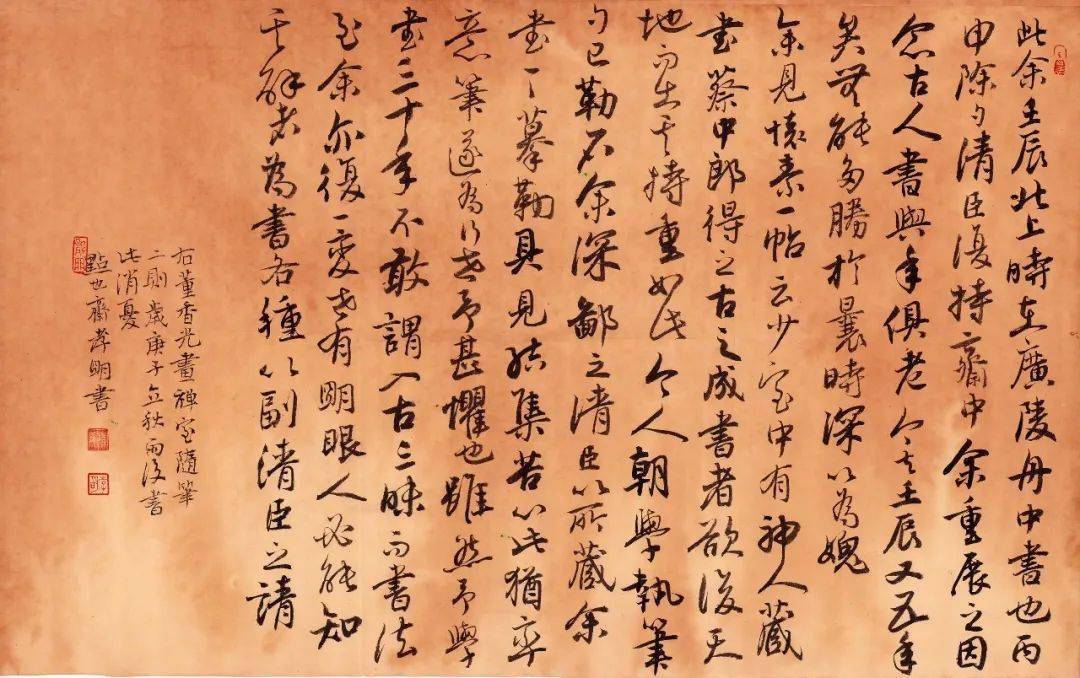 此余壬辰北上時在廣陵舟中書也丙
申除夕清臣復持齋中余重展之因
念古人書與年俱老今去壬辰又五年
矣無能多勝於曩時深以為媿
余見懷素一帖云少室中有神人藏
書蔡中郎得之古之成書者欲後天
地而生其持重如此今人朝學執筆
夕已勒石余深鄙之清臣以所藏余
書一一摹勒具見結集苦心此猶率
意筆遂為行世予甚懼也雖然予學
書三十年不敢謂入古三昧而書法
至余亦復一變世有明眼人必能知
其解者為書各種以副清臣之請
右董香光畫禪室隨筆
二則歲庚子立秋雨後書
此消憂
點也齋孝明書